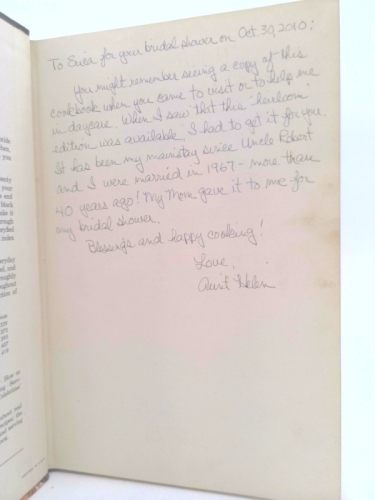 To Erica for your bridal shower on Oct 30, 2010:
You might remember seeing a copy of this
cookbook when you came to visit or to help me
in daycare. When I saw that this "heirloom"
edition was available, I had to get it for you.
It has been my mainstay since Uncle Robert
and I were married in 1967 - more than
40 years ago! My Mom gave it to me for
my bridal shower.
Blessings and happy cooking!
Love,
Aunt Helen